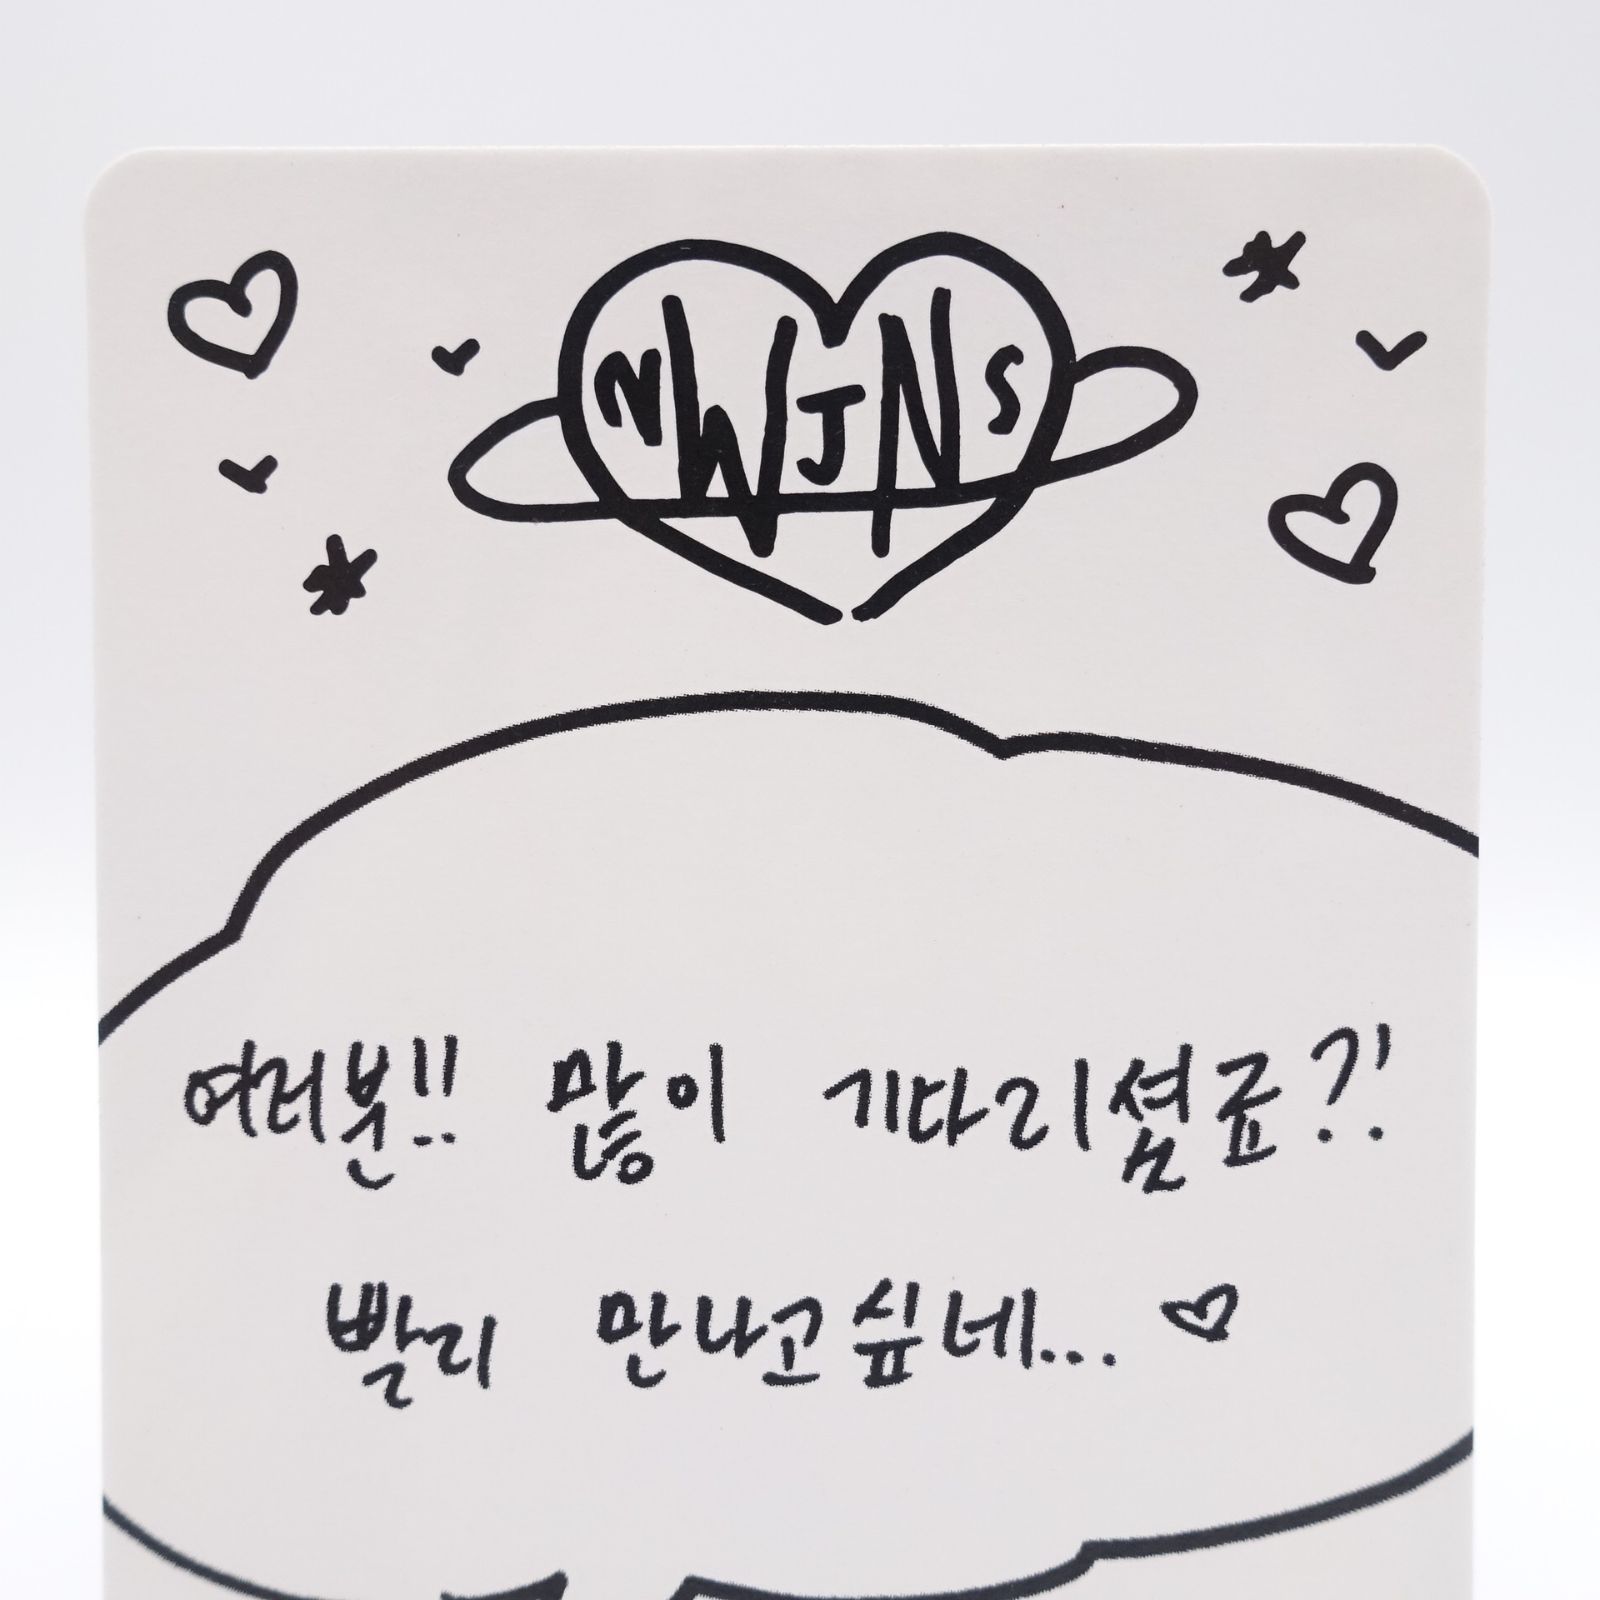 NWJNS
여러분!! 많이 기다리셨죠?!
빨리 만나고싶네... ♡